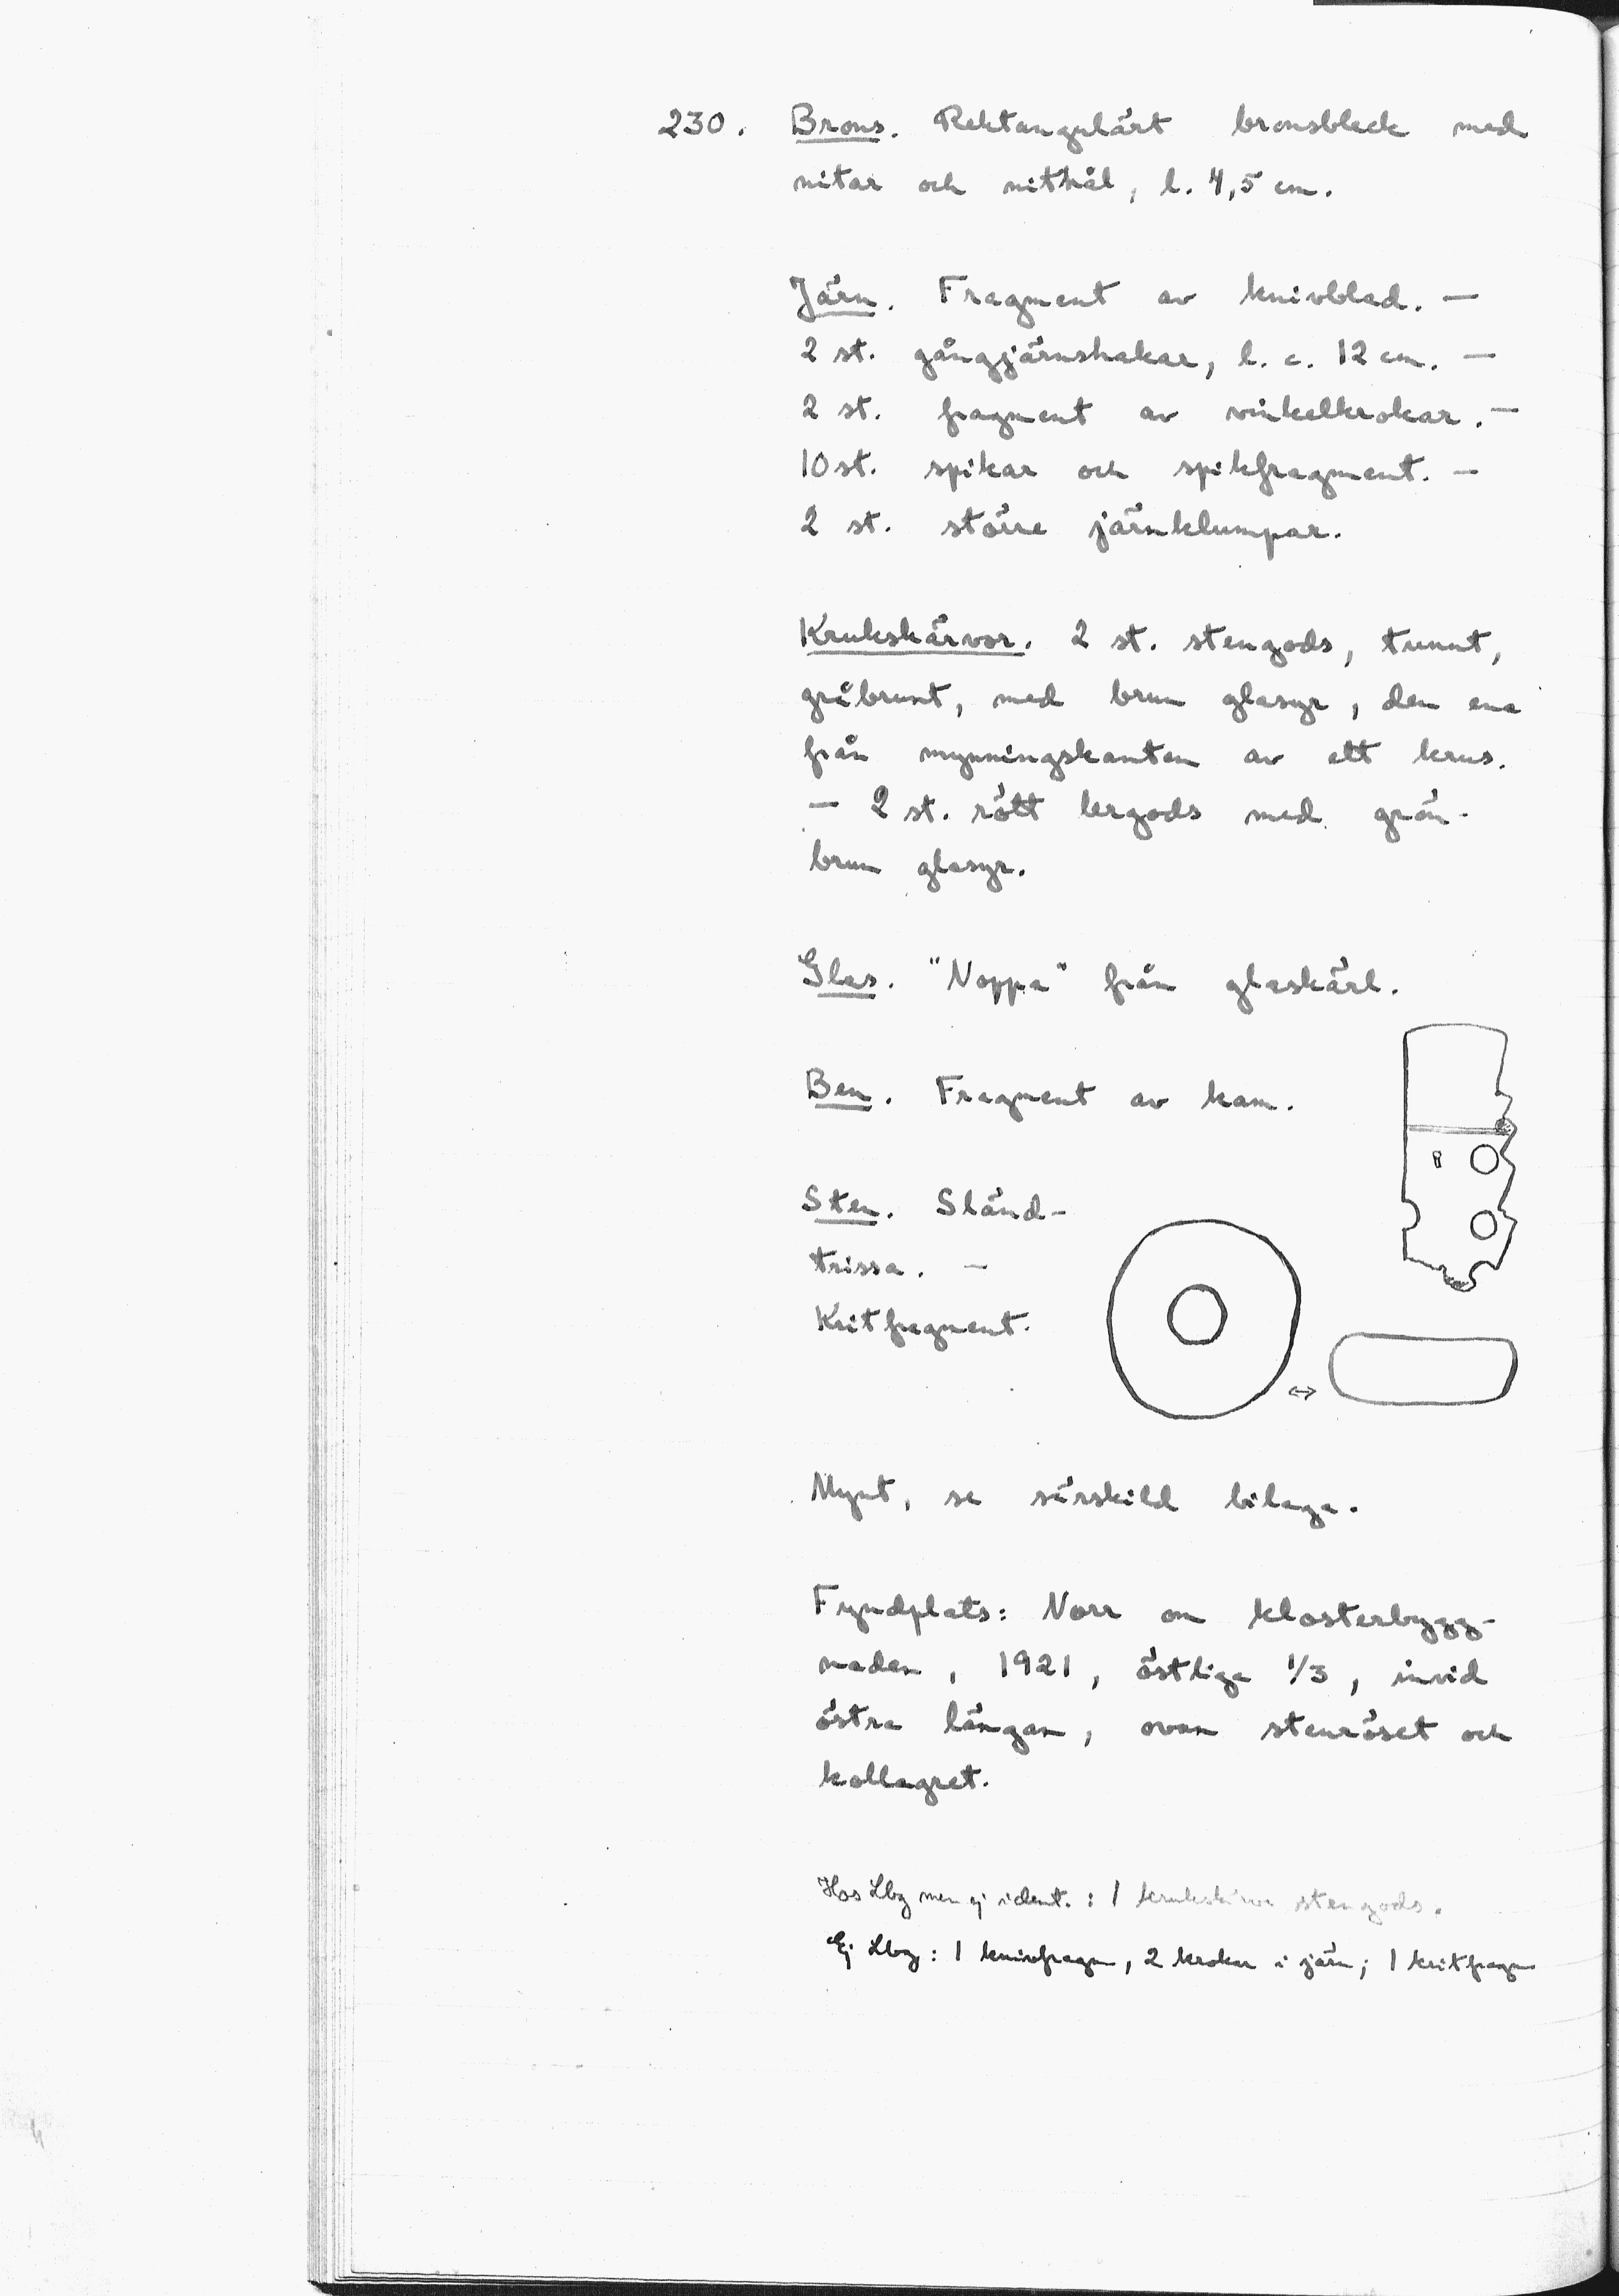 230. Brons. Rektangulärt bronsbleck med
nitar och nithål, l. 4,5 cm.
Järn. Fragment av knivblad. —
2 st. gångjärnshakar, l. c. 12 cm. —
2 st. fragment av vinkelkrokar. —
10 st. spikar och spikfragment. —
2 st. större järnklumpar.
Krukskärvor. 2 st. stengods, tunnt,
gråbrunt, med brun glasyr, den ena
från mynningskanten av ett krus.
— 2 st. rött lergods med grön-
brun glasyr.
Glas. "Noppa" från glaskärl.
Ben. Fragment av kam.
Sten. Sländ-
trissa. —
Kritfragment.
Mynt, se särskild bilaga.
Fyndplats: Norr om klosterbygg-
naden, 1921, östliga 1/3, invid
östra längan, ovan stenröset och
kollagret.
Hos Lbg men ej ident. : 1 krukskärva stengods.
Ej Lbg : 1 knivfragm, 2 krokar i järn; 1 kritfragm